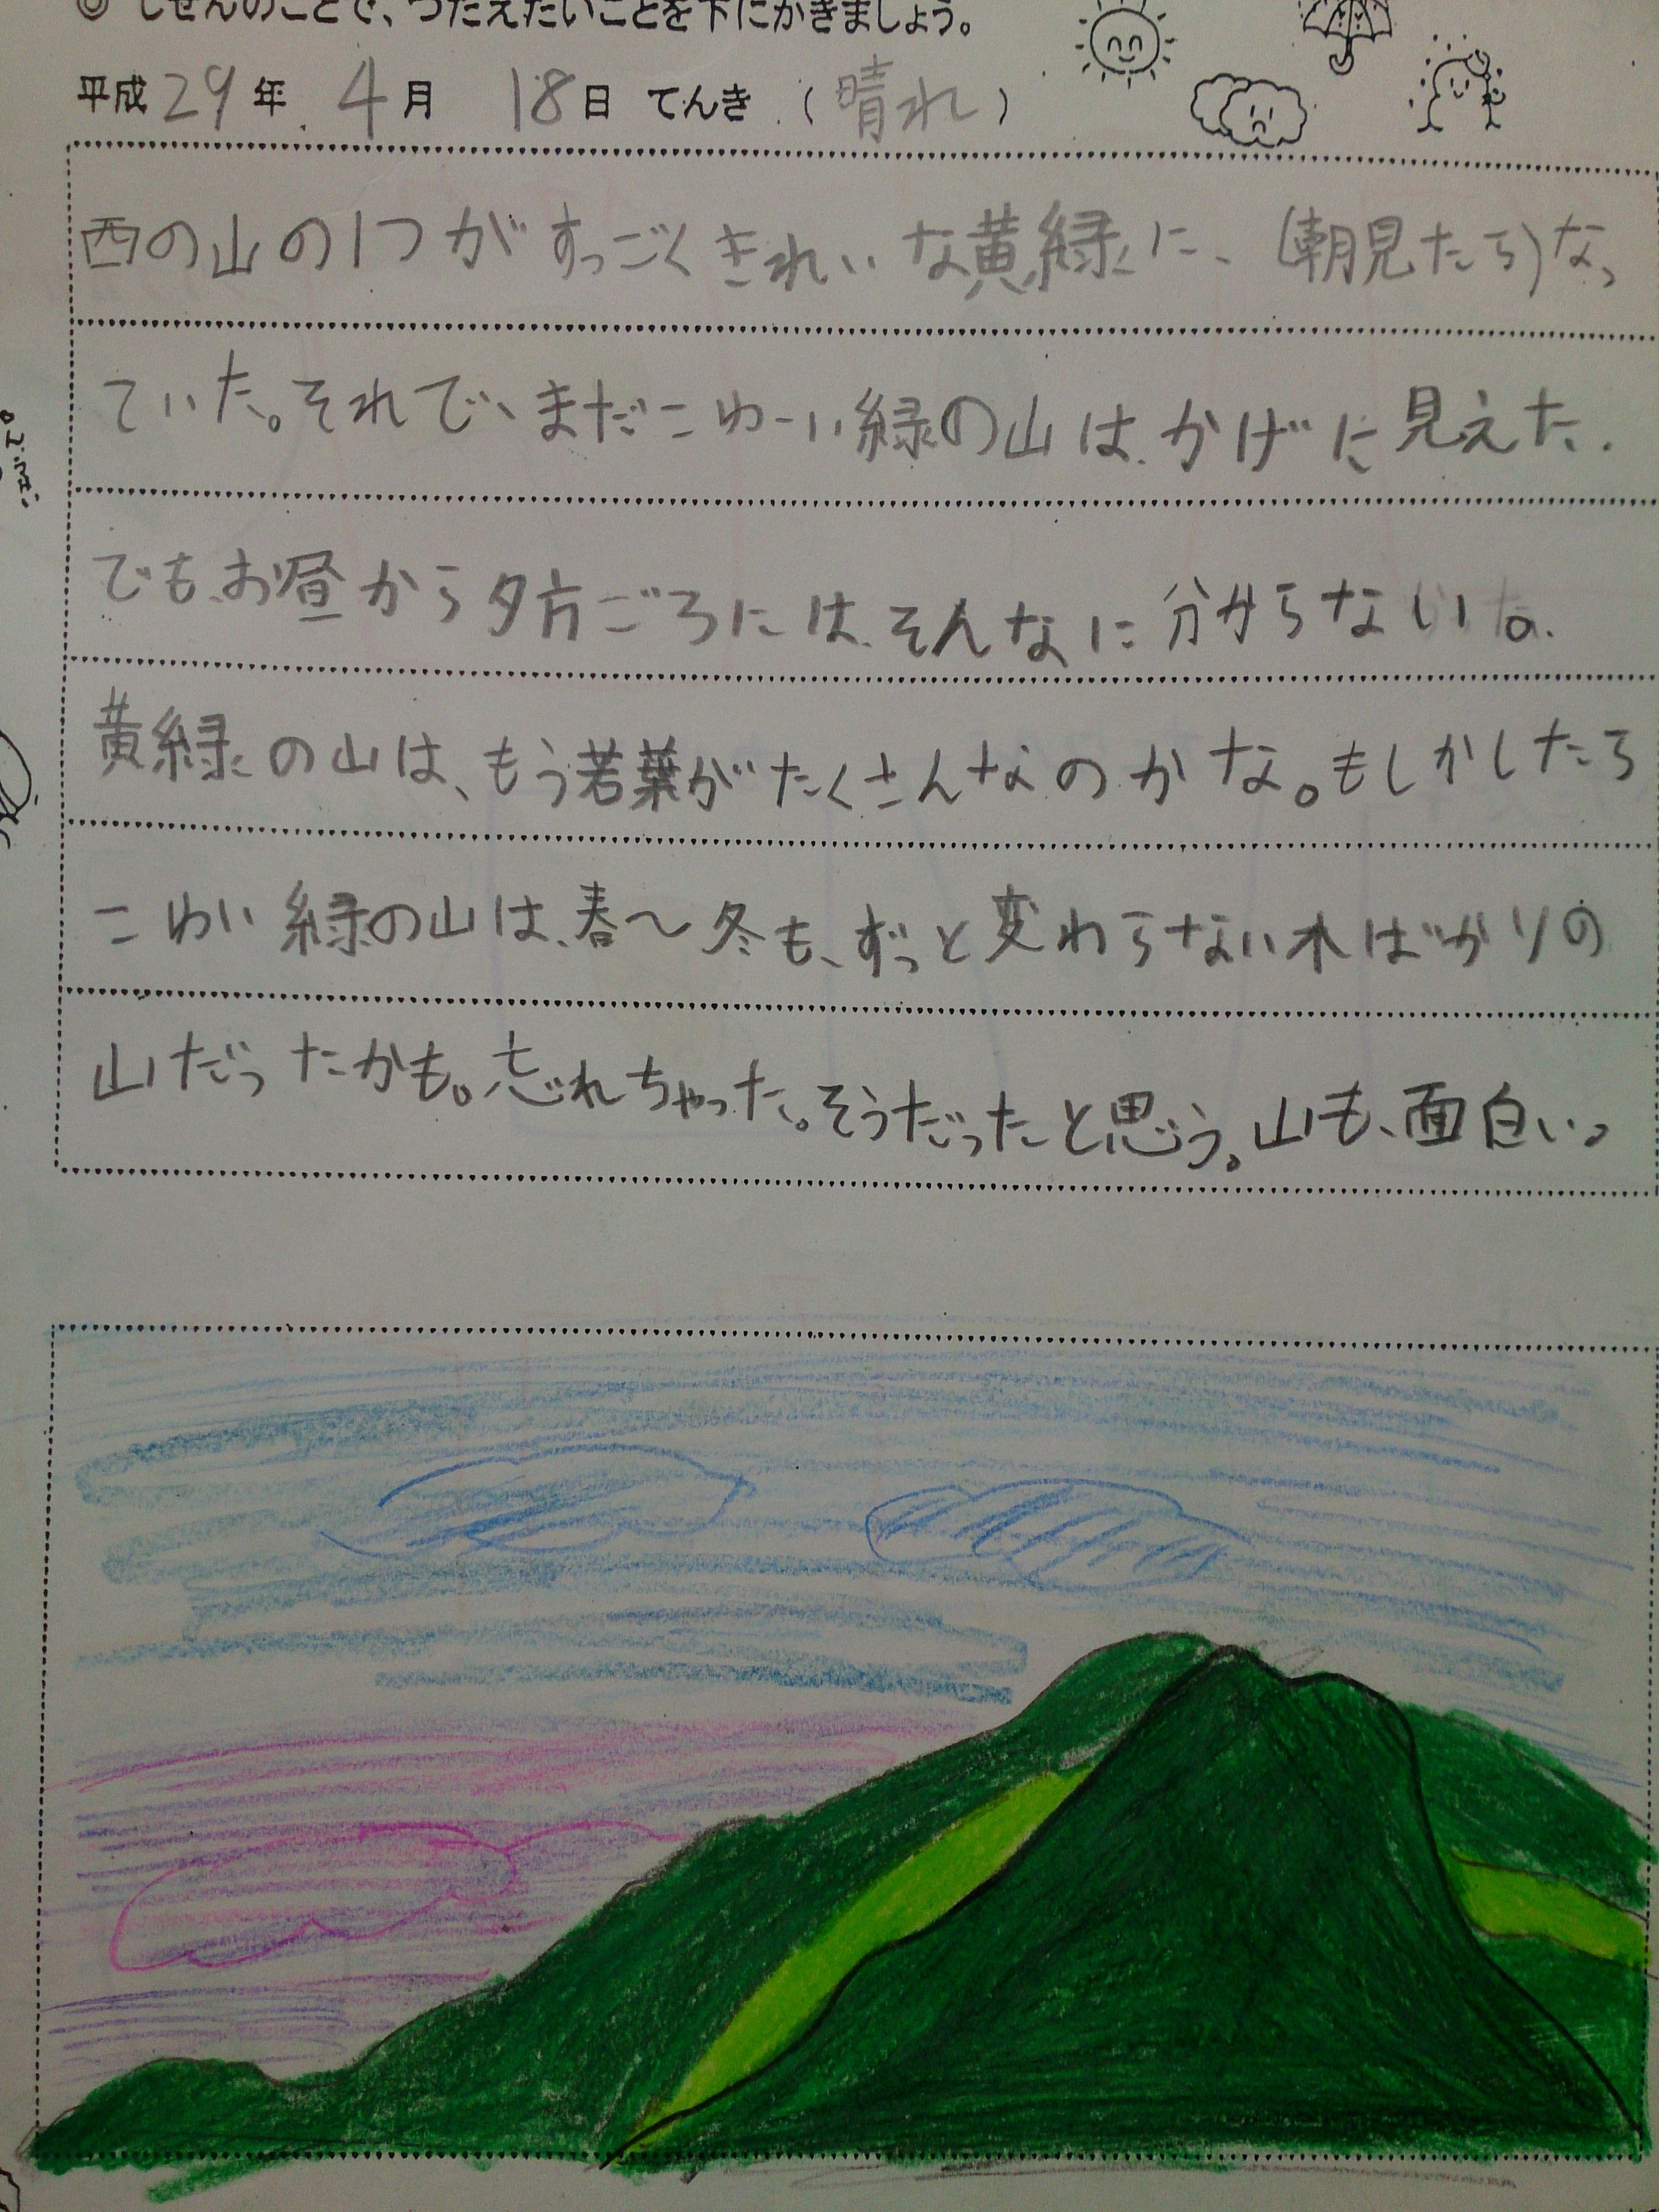 ◎ しぜんのことで、つたえたいことを下にかきましょう。
平成29年 4月 18日 てんき(晴れ)
西の山の1つがすっごくきれいな黄緑に、(朝見たら)なっ
ていた。それで、まだこわーい緑の山は、かげに見えた。
でも、お昼から夕方ごろには、そんなに分からない。
黄緑の山は、もう若葉がたくさんなのかな。もしかしたら
こわい緑の山は、春〜冬も、ずっと変わらない木ばかりの
山だったかも。忘れちゃった。そうだったと思う。山も、面白いっ